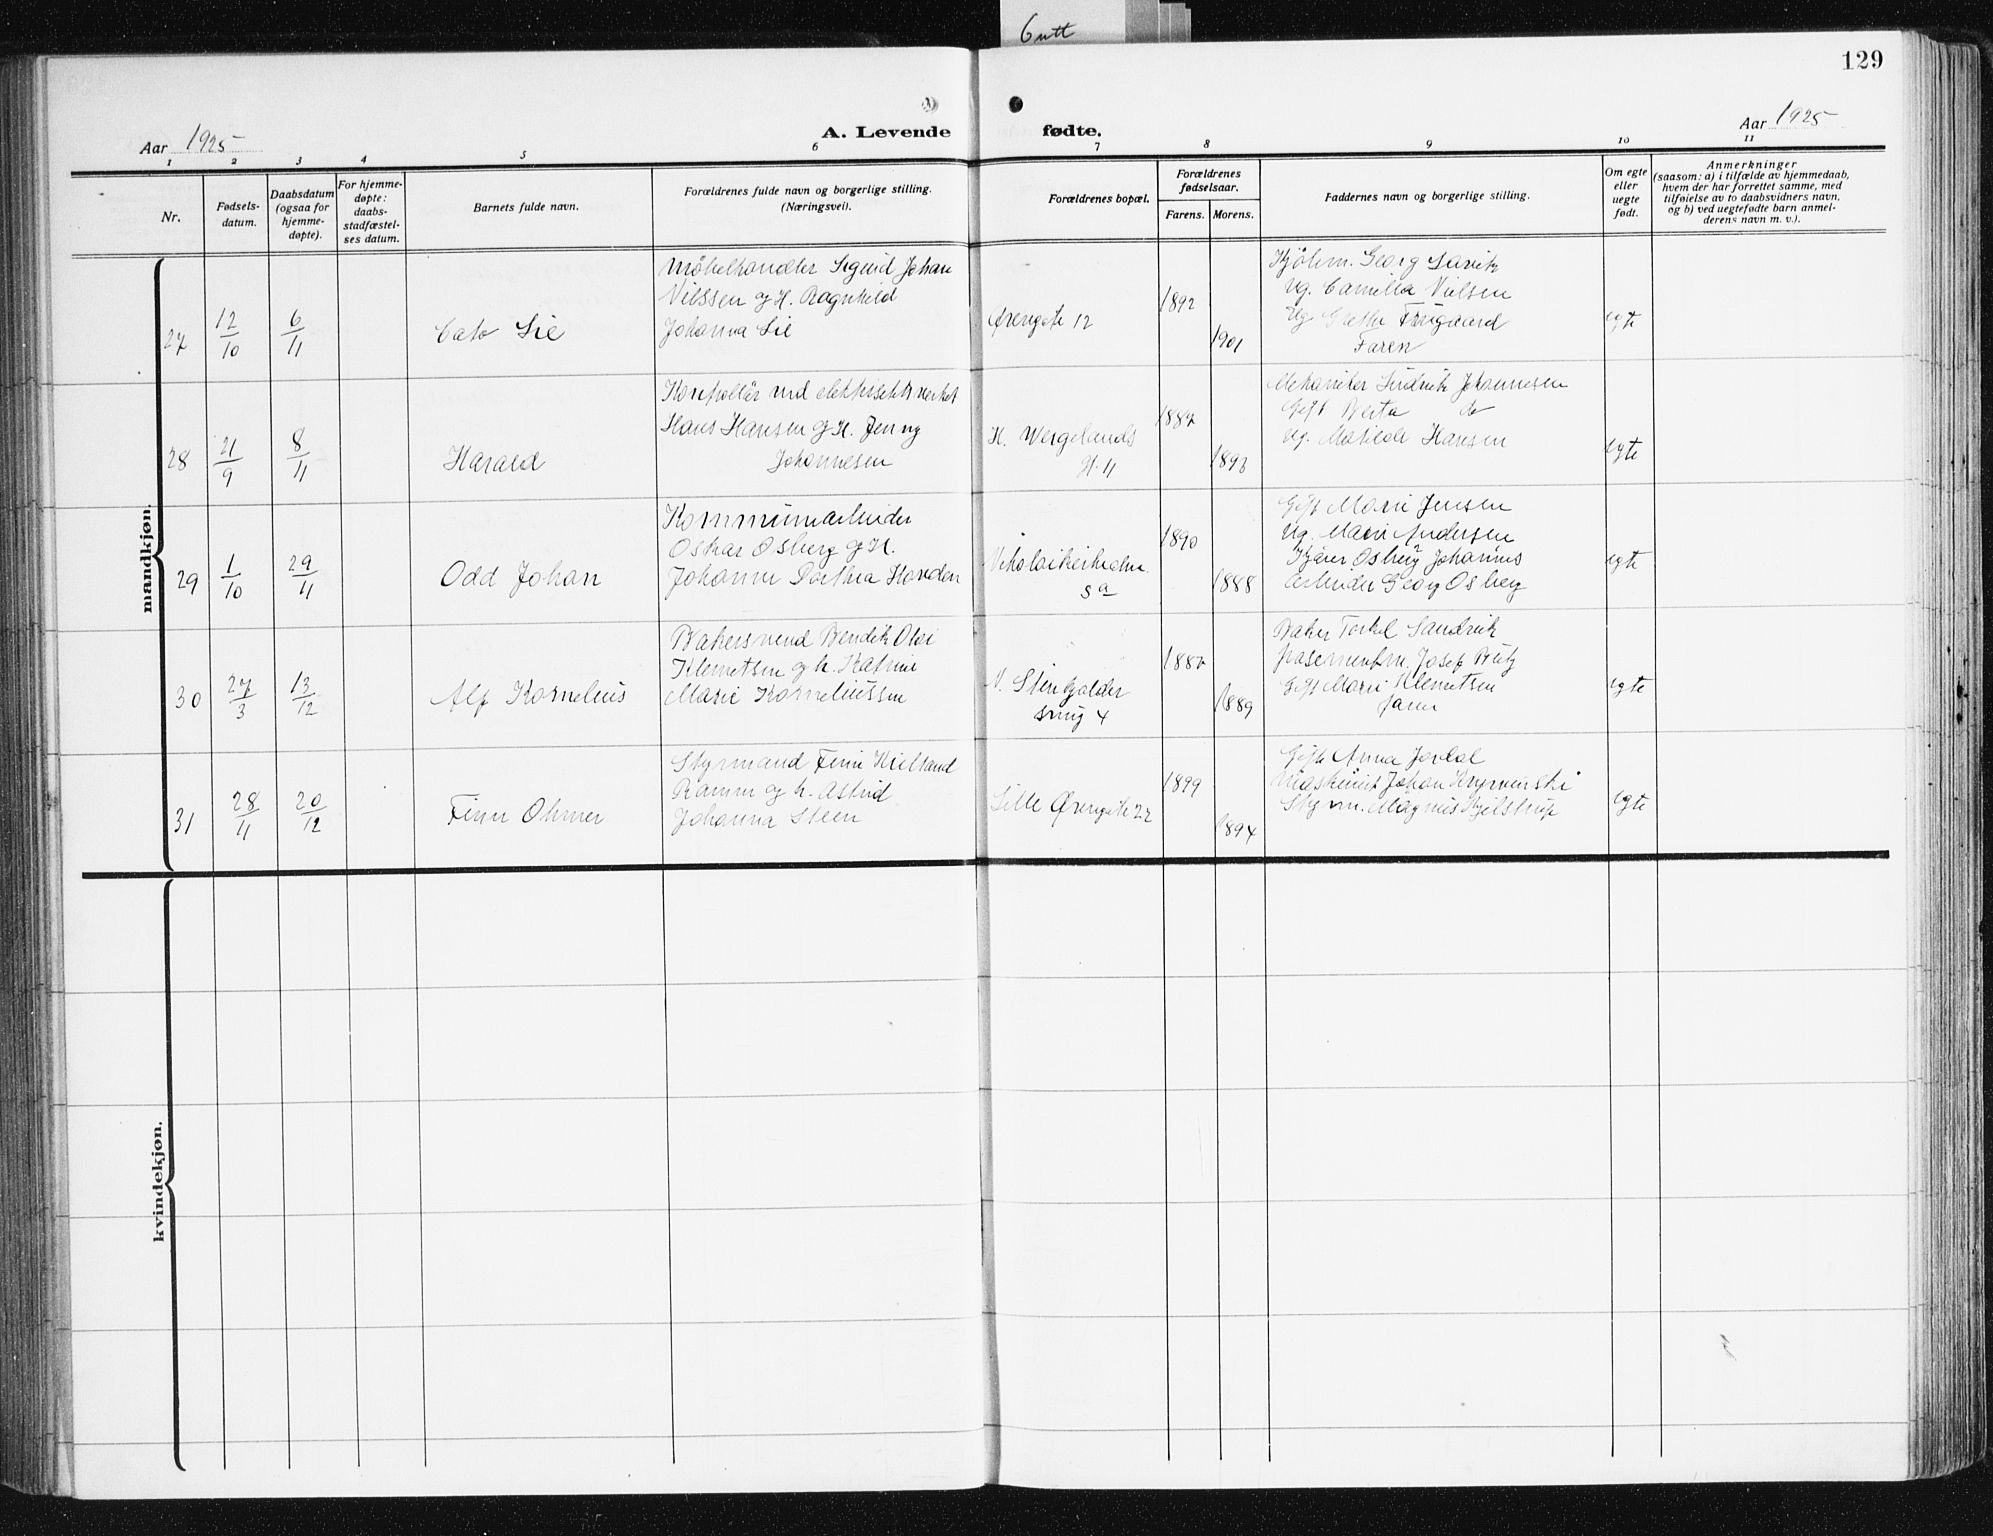 6 utt
129
Aar 1925
A. Levende
fødte.
Aar 1925
1 2 3 4 5 6 7 8 9 10 11
Nr.
Fødsels-
datum.
Daabsdatum
(ogsaa for
hjemme-
døpte).
For hjemme-
døpte:
daabs-
stadfæstel-
ses datum.
Barnets fulde navn.
Forældrenes fulde navn og borgerlige stilling.
(Næringsvei).
Forældrenes bopæl.
Forældrenes
fødselsaar.
Farens. Morens.
Faddernes navn og borgerlige stilling.
Om egte
eller
uegte
født.
Anmerkninger
(saasom: a) i tilfælde av hjemmedaab,
hvem der har forrettet samme, med
tilføielse av to daabsvidners navn,
og b) ved uegtefødte barn anmel-
derens navn m. v.).
mandkjøn.
27
12/10
6/11
Cato Lie
Møbelhandler Sigurd Johan
Nilssen og H. Ragnhild
Johanna Lie
Øvregate 12
1892
1901
Kjøbm. Georg
Ug. Camilla Nilsen
Ug Grethe
Faren
egte
28
21/9
8/11
Harald
Kontrollør ved elektrisitetsverket
Hans Hansen og H. Jenny
Johannesen
H. Wergelands
gt. 11
1893
Mekaniker Johannesen
Gift Berta do
Ug. Matilde Hansen
egte
29
1/10
29/11
Odd Johan
Kommunearbeider
Oskar Osberg og H.
Johanne
Nikolaikirkealm.
5a
1890
1888
Gift Marie Jensen
Ug. Marie Andersen
Osberg Johannes
Arbeider Georg Osberg
egte
30
27/3
13/12
Alf Kornelius
Bakersvend Bendik Olai
Klemetsen og h. Katrine
Marie Korneliussen
N. Stenkjelder
smug 4
1889
Baker Torkel Sandvik
pasementm. Josef
Gift Marie Klemetsen
faren
egte
31
28/11
20/12
Finn Ohmer
Styrmand Finn Kielland
Ramm og h. Astrid
Johanna Steen
Lille Øvregate 22
1899
1894
Gift Anna
Maskinist Johan
Styrm. Magnus Kjelstrup
egte
kvindekjøn.